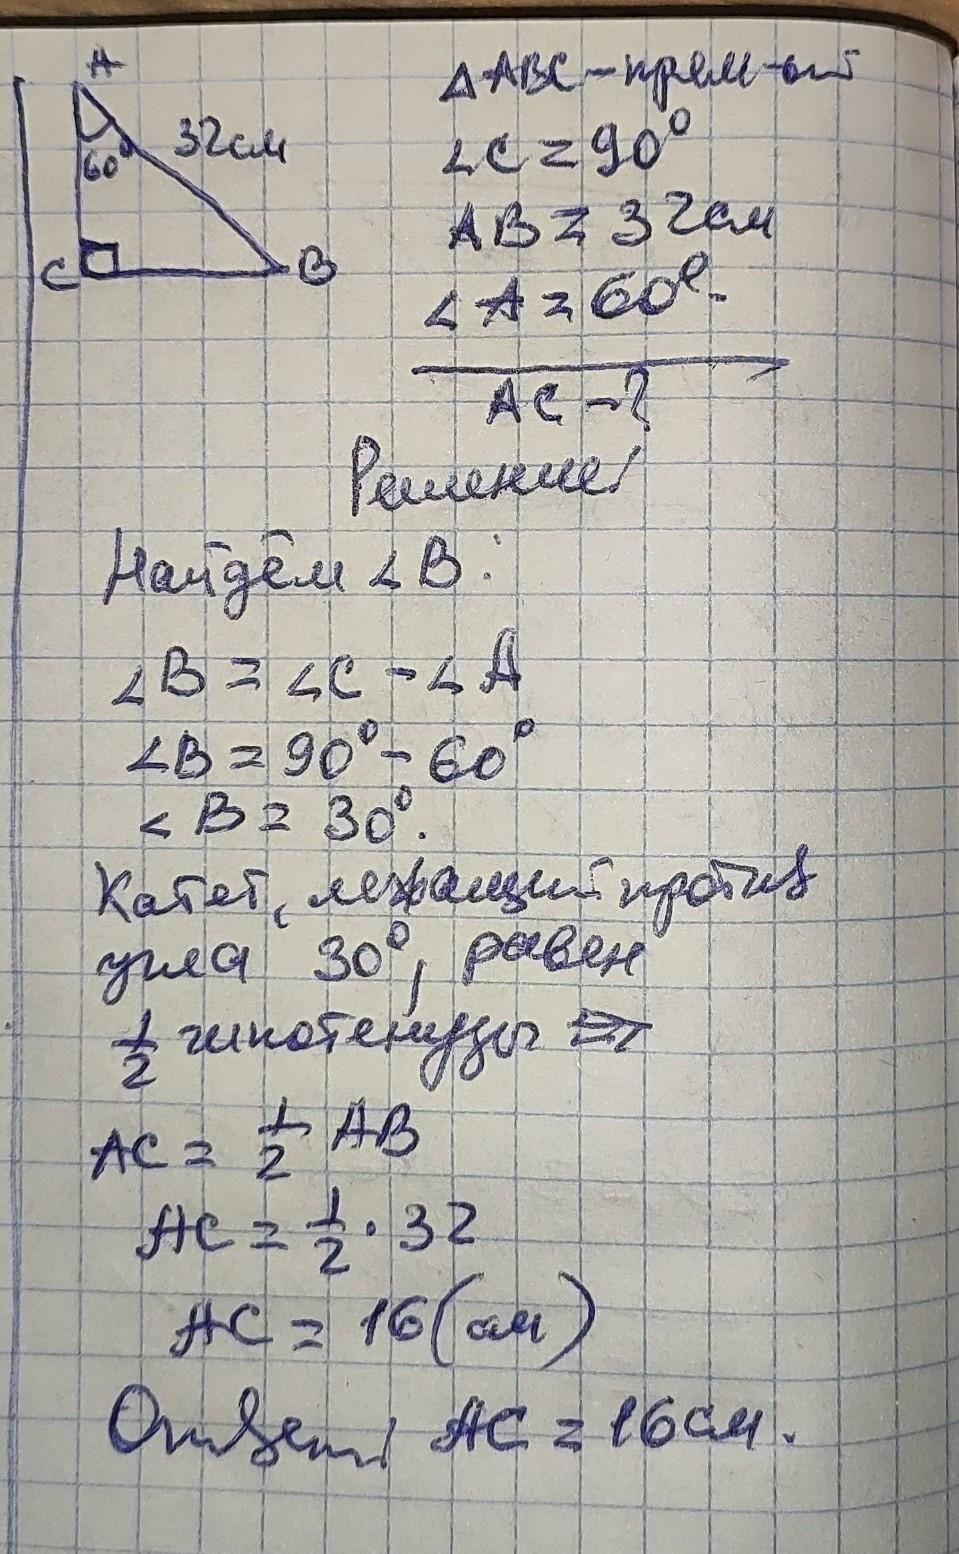 A
60
32см
C
B
△ABC - прям-ый
∠C = 90°
AB = 32см
∠A = 60°.
AC - ?
Решение:
Найдём ∠B:
∠B = ∠C - ∠A
∠B = 90° - 60°
∠B = 30°.
Катет, лежащий против
угла 30°, равен
1/2 гипотенузы ⇒
AC = 1/2 AB
AC = 1/2 · 32
AC = 16 (см)
Ответ: AC = 16 см.